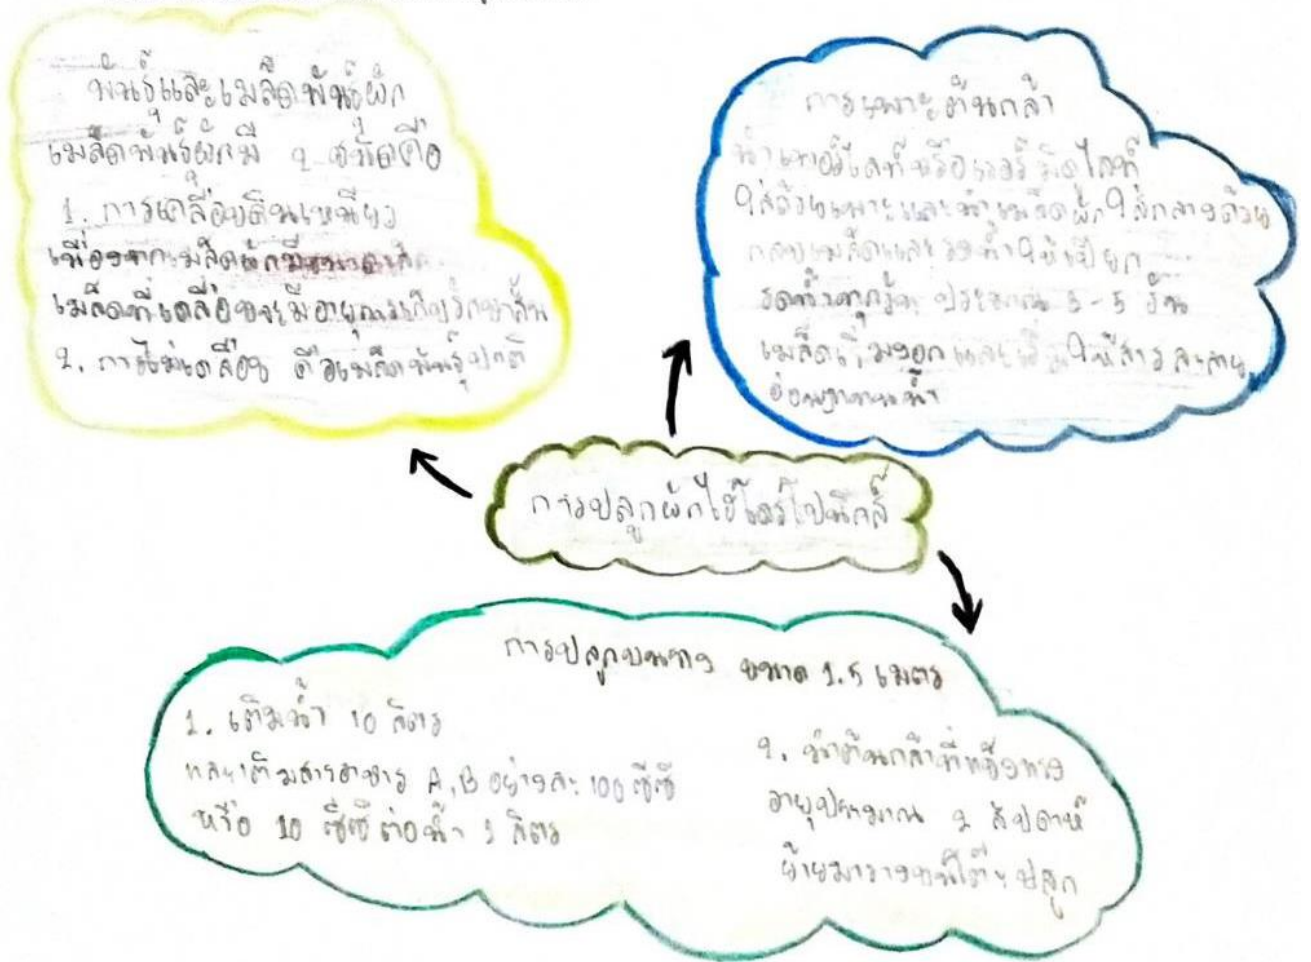 พันธุ์และเมล็ดพันธุ์ผัก
เมล็ดพันธุ์ผักมี 2 ชนิดคือ
1. การเคลือบดินเหนียว
เนื่องจากเมล็ดผักมีขนาดเล็ก
เมล็ดที่เคลือบจะมีอายุการเก็บรักษาสั้น
2. การไม่เคลือบ คือเมล็ดพันธุ์ปกติ
การเพาะต้นกล้า
นำเพอร์ไลท์หรือเวอร์มิคูไลท์
ใส่ถ้วยเพาะและนำเมล็ดผักใส่กลางถ้วย
กลบเมล็ดและรดน้ำให้เปียก
รดน้ำทุกวัน ประมาณ 3-5 วัน
เมล็ดเริ่มงอกและเริ่มให้สารละลาย
การปลูกผักไฮโดรโปนิกส์
การปลูกบนราง ขนาด 1.5 เมตร
1. เติมน้ำ 10 ลิตร
และเติมสารอาหาร A,B อย่างละ 100 ซีซี
หรือ 10 ซีซี ต่อน้ำ 1 ลิตร
2. นำต้นกล้าที่แข็งแรง
อายุประมาณ 2 สัปดาห์
ย้ายมาวางบนโต๊ะปลูก